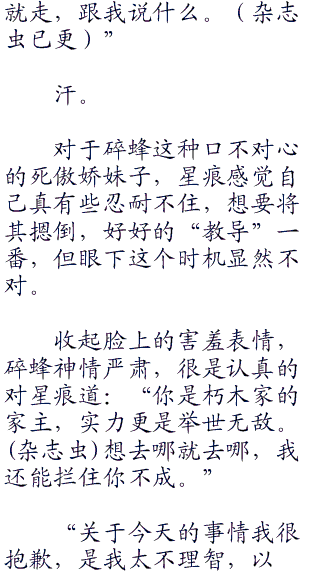 就走，跟我说什么。（杂志
虫已更）”
汗。
对于碎蜂这种口不对心
的死傲娇妹子，星痕感觉自
己真有些忍耐不住，想要将
其摁倒，好好的“教导”一
番，但眼下这个时机显然不
对。
收起脸上的害羞表情，
碎蜂神情严肃，很是认真的
对星痕道：“你是朽木家的
家主，实力更是举世无敌。
(杂志虫)想去哪就去哪，我
还能拦住你不成。”
“关于今天的事情我很
抱歉，是我太不理智，以